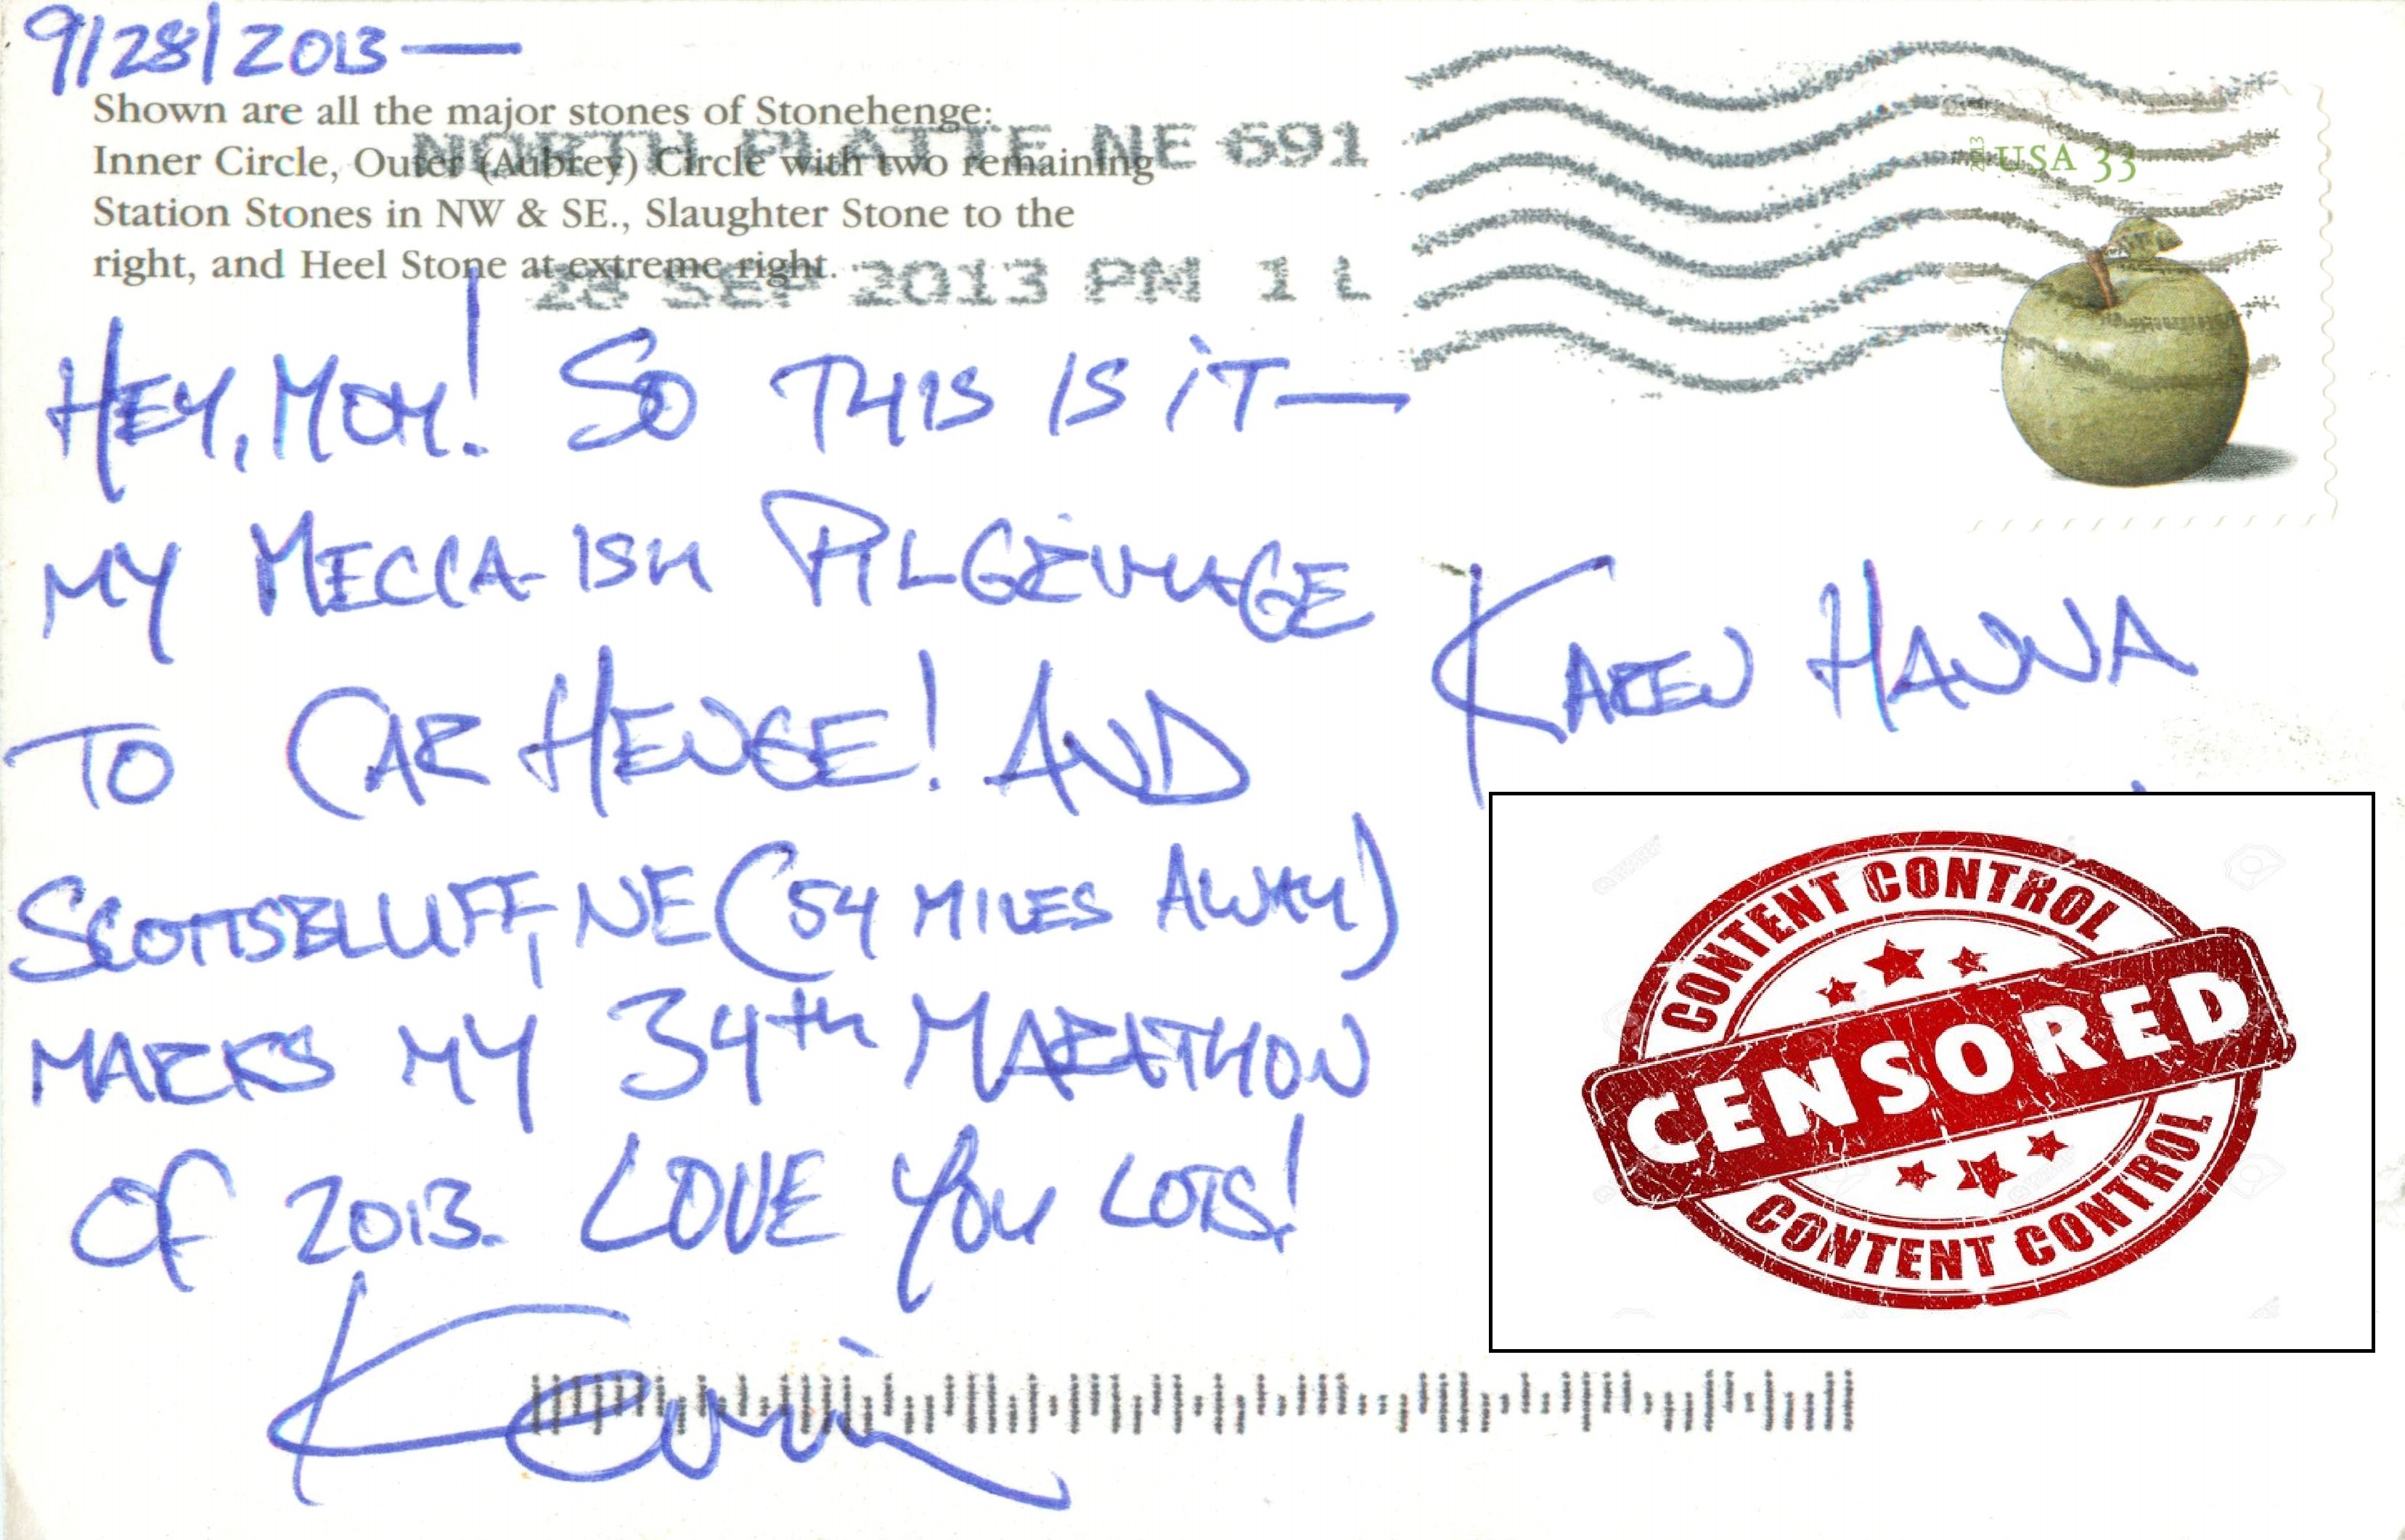 9/28/2013—
Shown are all the major stones of Stonehenge:
Inner Circle, Outer (Aubrey) Circle with two remaining
Station Stones in NW & SE., Slaughter Stone to the
right, and Heel Stone at extreme right.
NORTH PLATTE NE 691
28 SEP 2013 PM 1 L
2013
USA 33
HEY, MOM! SO THIS IS iT—
MY MECCA-ISH PILGRIMAGE
TO CAR HENGE! AND
SCOTTSBLUFF, NE (54 MILES AWAY)
MARKS MY 34th MARATHON
OF 2013. LOVE YOU LOTS!
Kevin
KAREN HANNA
CONTENT CONTROL
CENSORED
CONTENT CONTROL